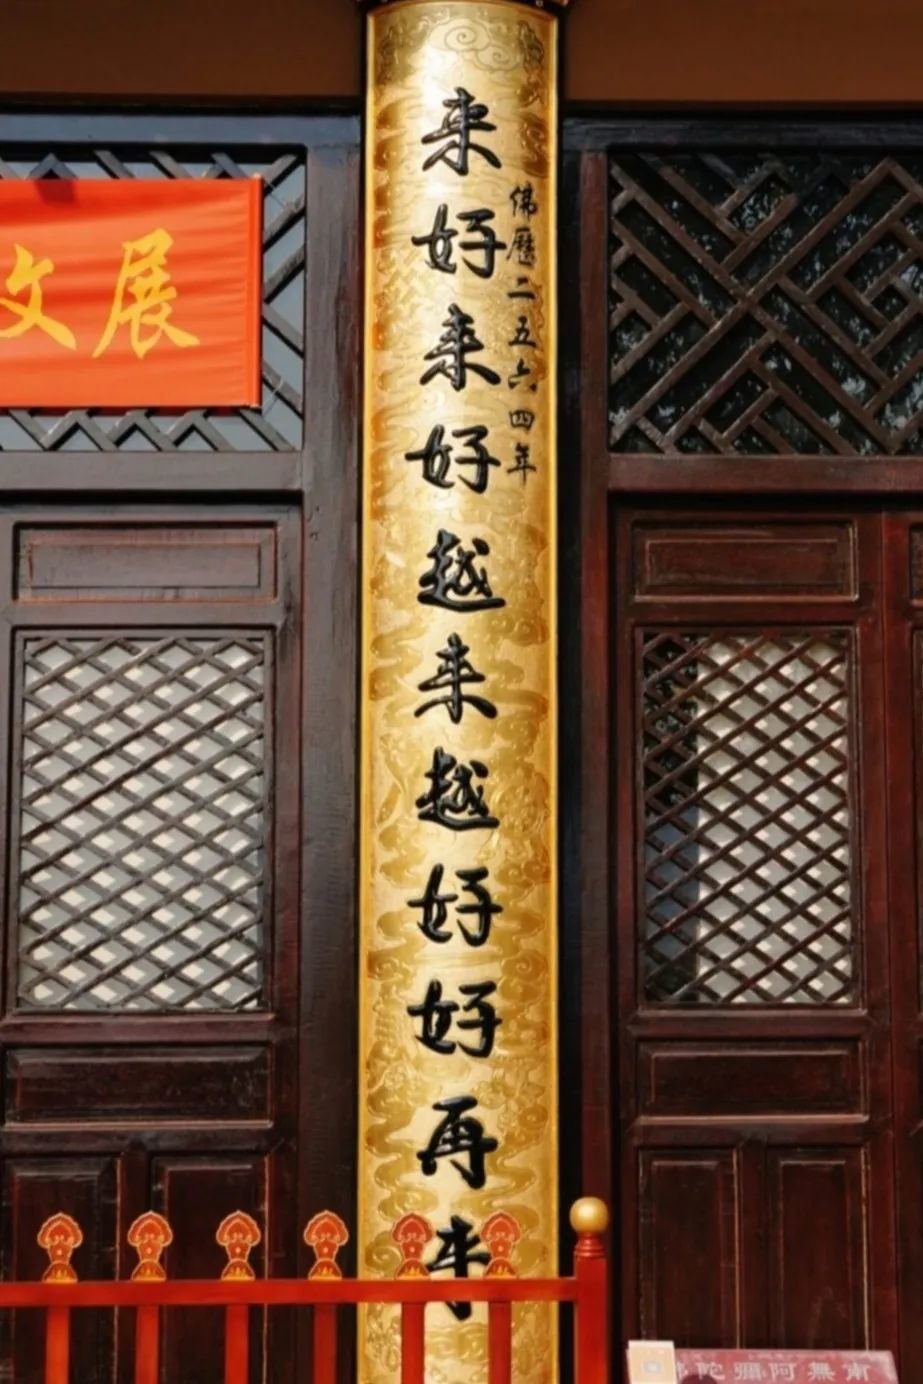 佛曆二五六四年
来好来好越来越好好再来
文展
南無阿彌陀佛